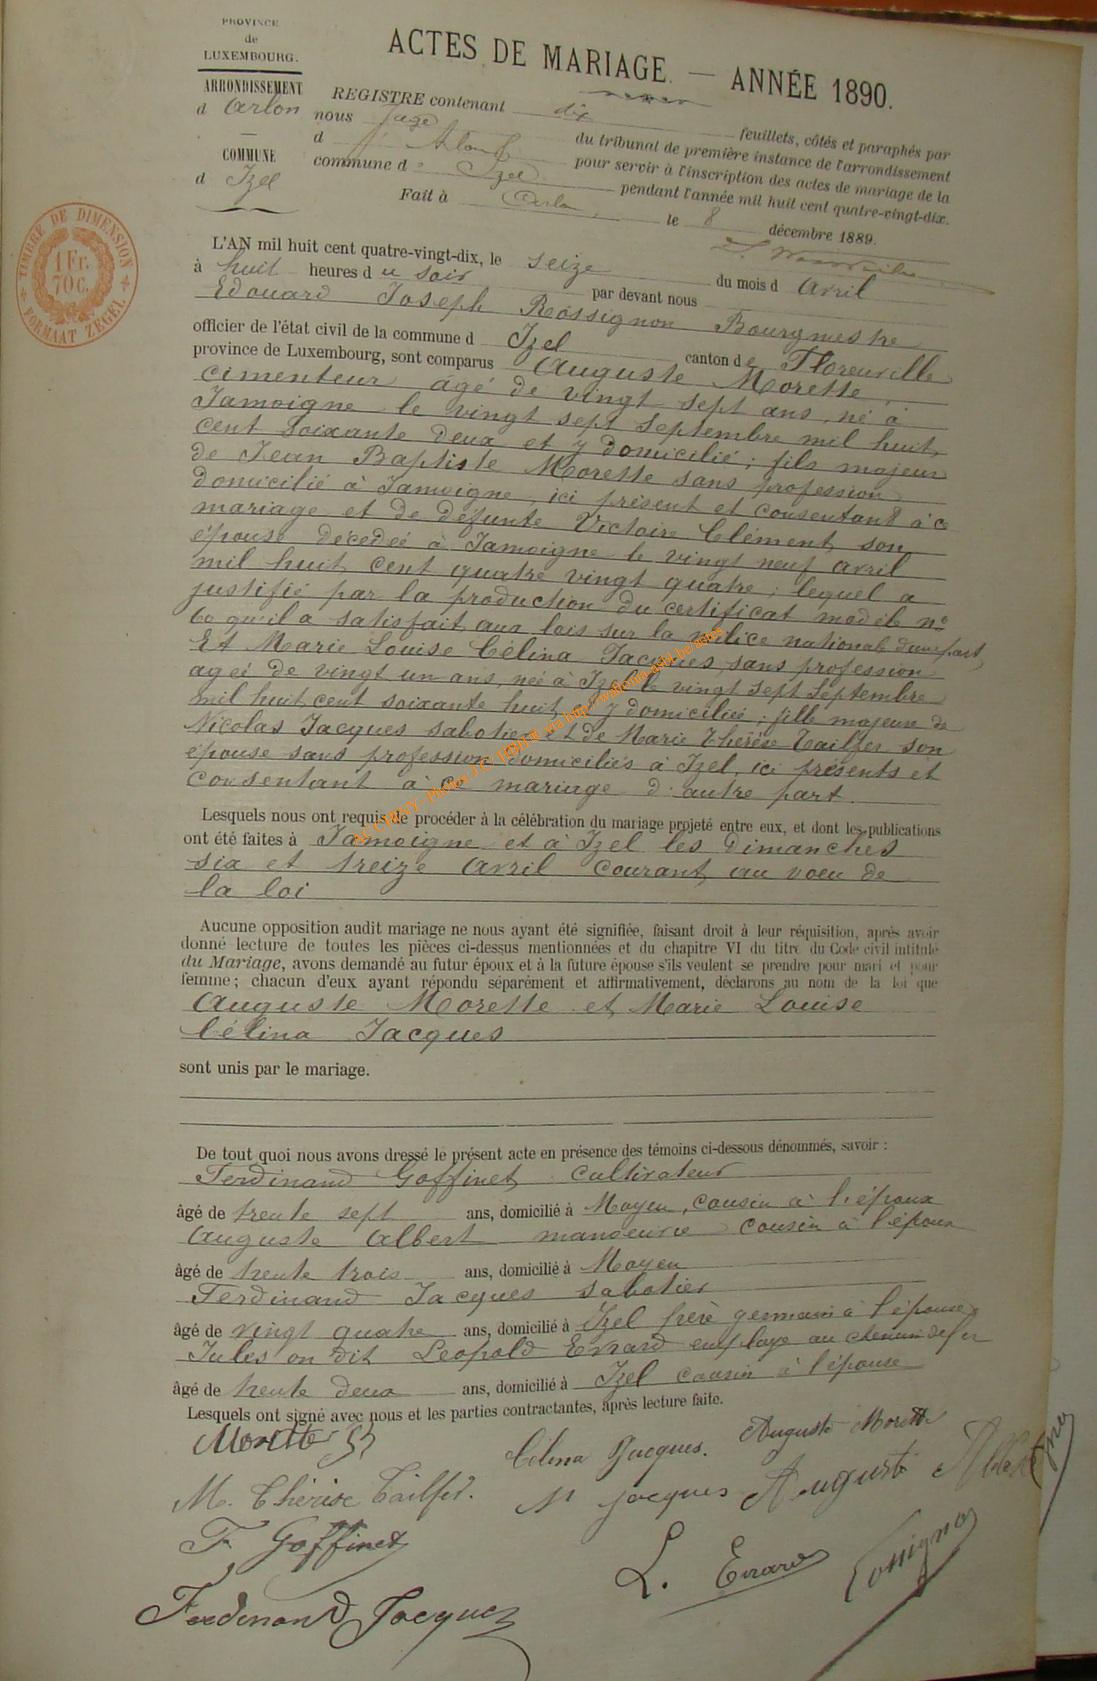 PROVINCE
de
LUXEMBOURG.
ARRONDISSEMENT
d Arlon
COMMUNE
d Izel
TIMBRE DE DIMENSION
1 Fr.
70 c.
FORMAAT ZEGEL
ACTES DE MARIAGE. — ANNÉE 1890.
REGISTRE contenant dix feuillets, côtés et paraphés par
nous Juge du tribunal de première instance de l'arrondissement
d' Arlon pour servir à l'inscription des actes de mariage de la
commune d' Izel pendant l'année mil huit cent quatre-vingt-dix.
Fait à Arlon, le 8 décembre 1889.
L'AN mil huit cent quatre-vingt-dix, le seize du mois d Avril
à huit heures d u soir par devant nous
Edouard Joseph Rossignon Bourgmestre
officier de l'état civil de la commune d Izel canton de Florenville
province de Luxembourg, sont comparus Auguste Morette,
cimenteur âgé de vingt sept ans, né à
Jamoigne le vingt sept Septembre mil huit
cent soixante deux et y domicilié ; fils majeur
de Jean Baptiste Morette sans profession
domicilié à Jamoigne, ici présent et consentant à ce
mariage et de défunte Victoire Clément son
épouse décédée à Jamoigne le vingt neuf avril
mil huit cent quatre vingt quatre ; lequel a
justifié par la production du certificat modèle n°
60 qu'il a satisfait aux lois sur la milice nationale d'une part,
Et Marie Louise Célina Jacques, sans profession
agée de vingt un ans, née à Izel le vingt sept Septembre
mil huit cent soixante huit et y domiciliée ; fille majeure de
Nicolas Jacques sabotier et de Marie Thérèse Tailfer son
épouse sans profession domiciliés à Izel, ici présents et
consentant à ce mariage d'autre part.
Lesquels nous ont requis de procéder à la célébration du mariage projeté entre eux, et dont les publications
ont été faites à Jamoigne et à Izel les dimanches
six et treize Avril courant au voeu de
la loi
Aucune opposition audit mariage ne nous ayant été signifiée, faisant droit à leur réquisition, après avoir
donné lecture de toutes les pièces ci-dessus mentionnées et du chapitre VI du titre du Code civil intitulé
du Mariage, avons demandé au futur époux et à la future épouse s'ils veulent se prendre pour mari et pour
femme ; chacun d'eux ayant répondu séparément et affirmativement, déclarons au nom de la loi que
Auguste Morette et Marie Louise
Célina Jacques
sont unis par le mariage.
De tout quoi nous avons dressé le présent acte en présence des témoins ci-dessous dénommés, savoir :
Ferdinand Goffinet cultivateur
âgé de trente sept ans, domicilié à Moyen, cousin à l'époux
Auguste Albert manoeuvre cousin à l'époux
âgé de trente trois ans, domicilié à Moyen
Ferdinand Jacques sabotier
âgé de vingt quatre ans, domicilié à Izel frère germain à l'épouse
Jules on dit Léopold Errard employé au chemin de fer
âgé de trente deux ans, domicilié à Izel cousin à l'épouse
Lesquels ont signé avec nous et les parties contractantes, après lecture faite.
Morette Célina Jacques. Auguste Morette
M. Thérèse Tailfer. N Jacques Auguste Albert
F. Goffinet
L. Errard Rossignon
Ferdinand Jacques